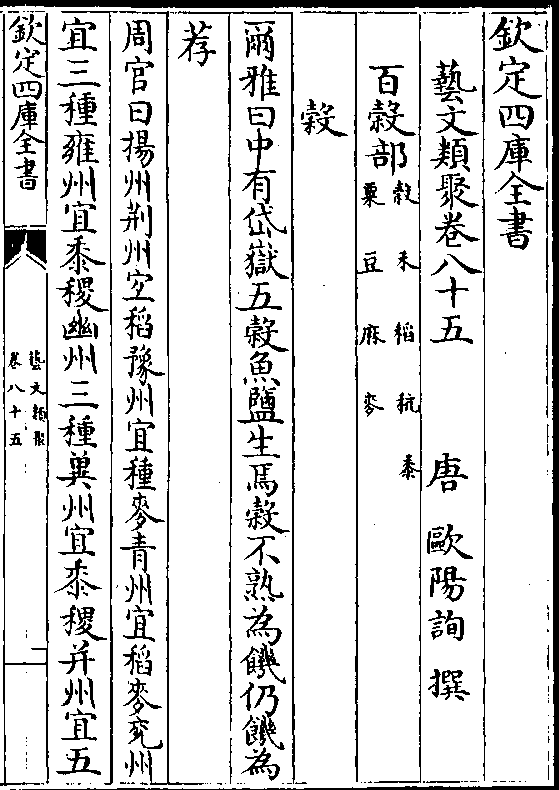 欽定四庫全書
藝文類聚卷八十五　　唐　歐陽詢　撰
百穀部
穀　禾　稻　秔　黍
粟　豆　麻　麥
穀
爾雅曰中有岱嶽五穀魚鹽生焉穀不熟為饑仍饑為
荐
周官曰揚州荆州宜稻豫州宜種麥青州宜稻麥兖州
宜三種雍州宜黍稷幽州三種冀州宜黍稷并州宜五
欽定四庫全書
藝文類聚
卷八十五
一